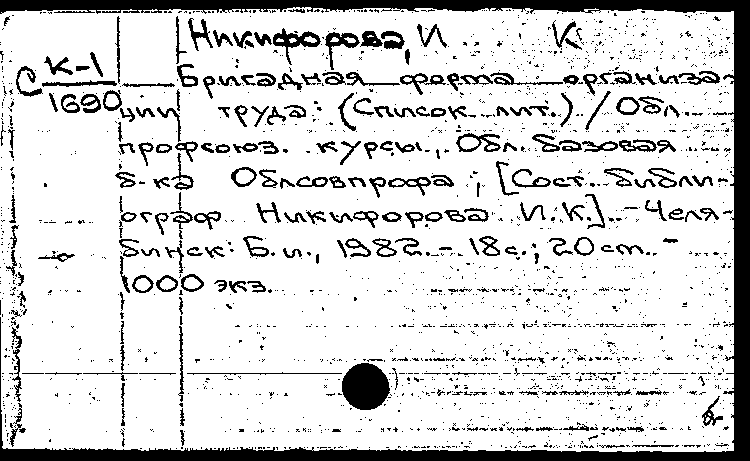 Никифорова, И К
С К-1
1690
Бригадная форма организа-
ции труда: (Список лит.) / Обл.
профсоюз. курсы, Обл. базовая
б-ка Облсовпрофа; [Сост. библи-
ограф Никифорова И.К.]. - Челя-
бинск: Б.и., 1982. - 18с.; 20 cm. -
1000 экз.